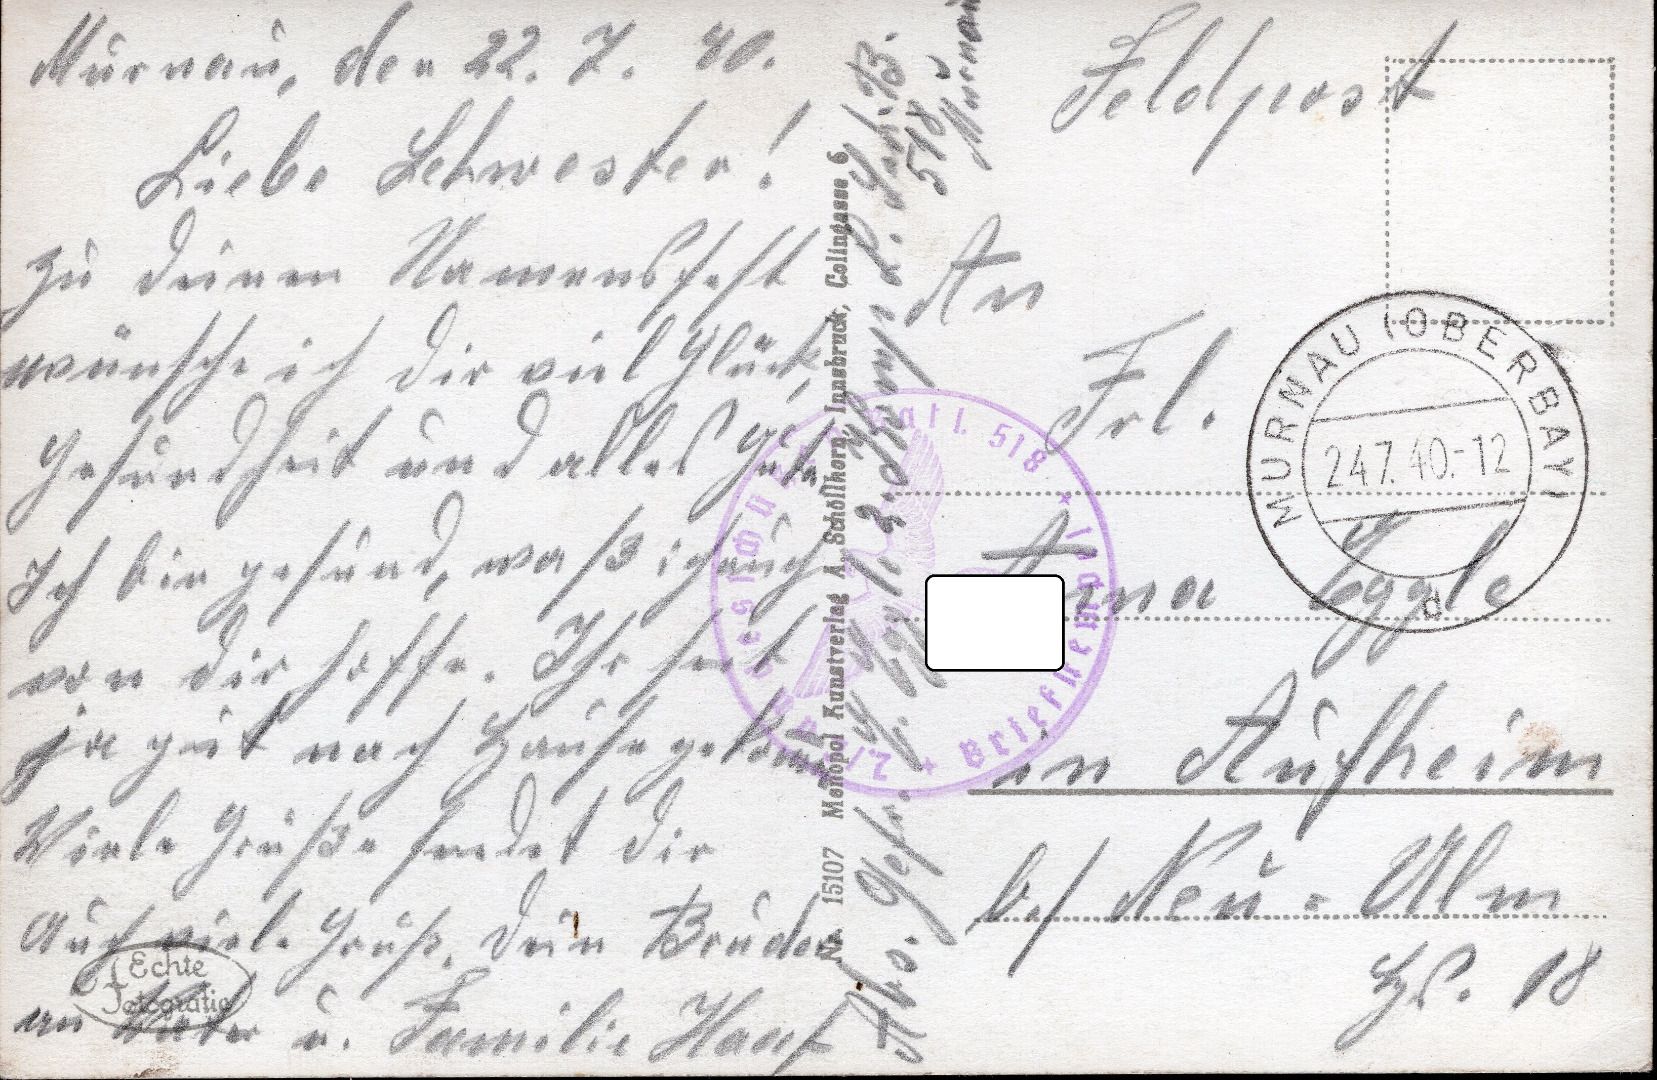 Murnau, den 22. 7. 40.
Liebe Schwester!
zu deinem Namensfest
wünsche ich dir viel Glück,
Gesundheit und alles Gute
Ich bin gesund, waß ich auch
von dir hoffe. Ihr seit
ja gut nach Hause gekomm
Viele Grüße sendet dir
Auch viele Grüß, dein Bruder
an Vater u. Familie Haaf
Echte
Fotografie
Nr. 15107 Monopol Kunstverlag A. Schöllhorn, Innsbruck, Colingasse 6
Abs. Gefr. J. Egg
518
Murnau
Landesschützen Batl. 518
Briefstempel
Feldpost
An
Frl.
Anna Eggle
in Aufheim
b/ Neu-Ulm
Hs. 18
MURNAU (OBERBAY)
24.7.40.-12
d